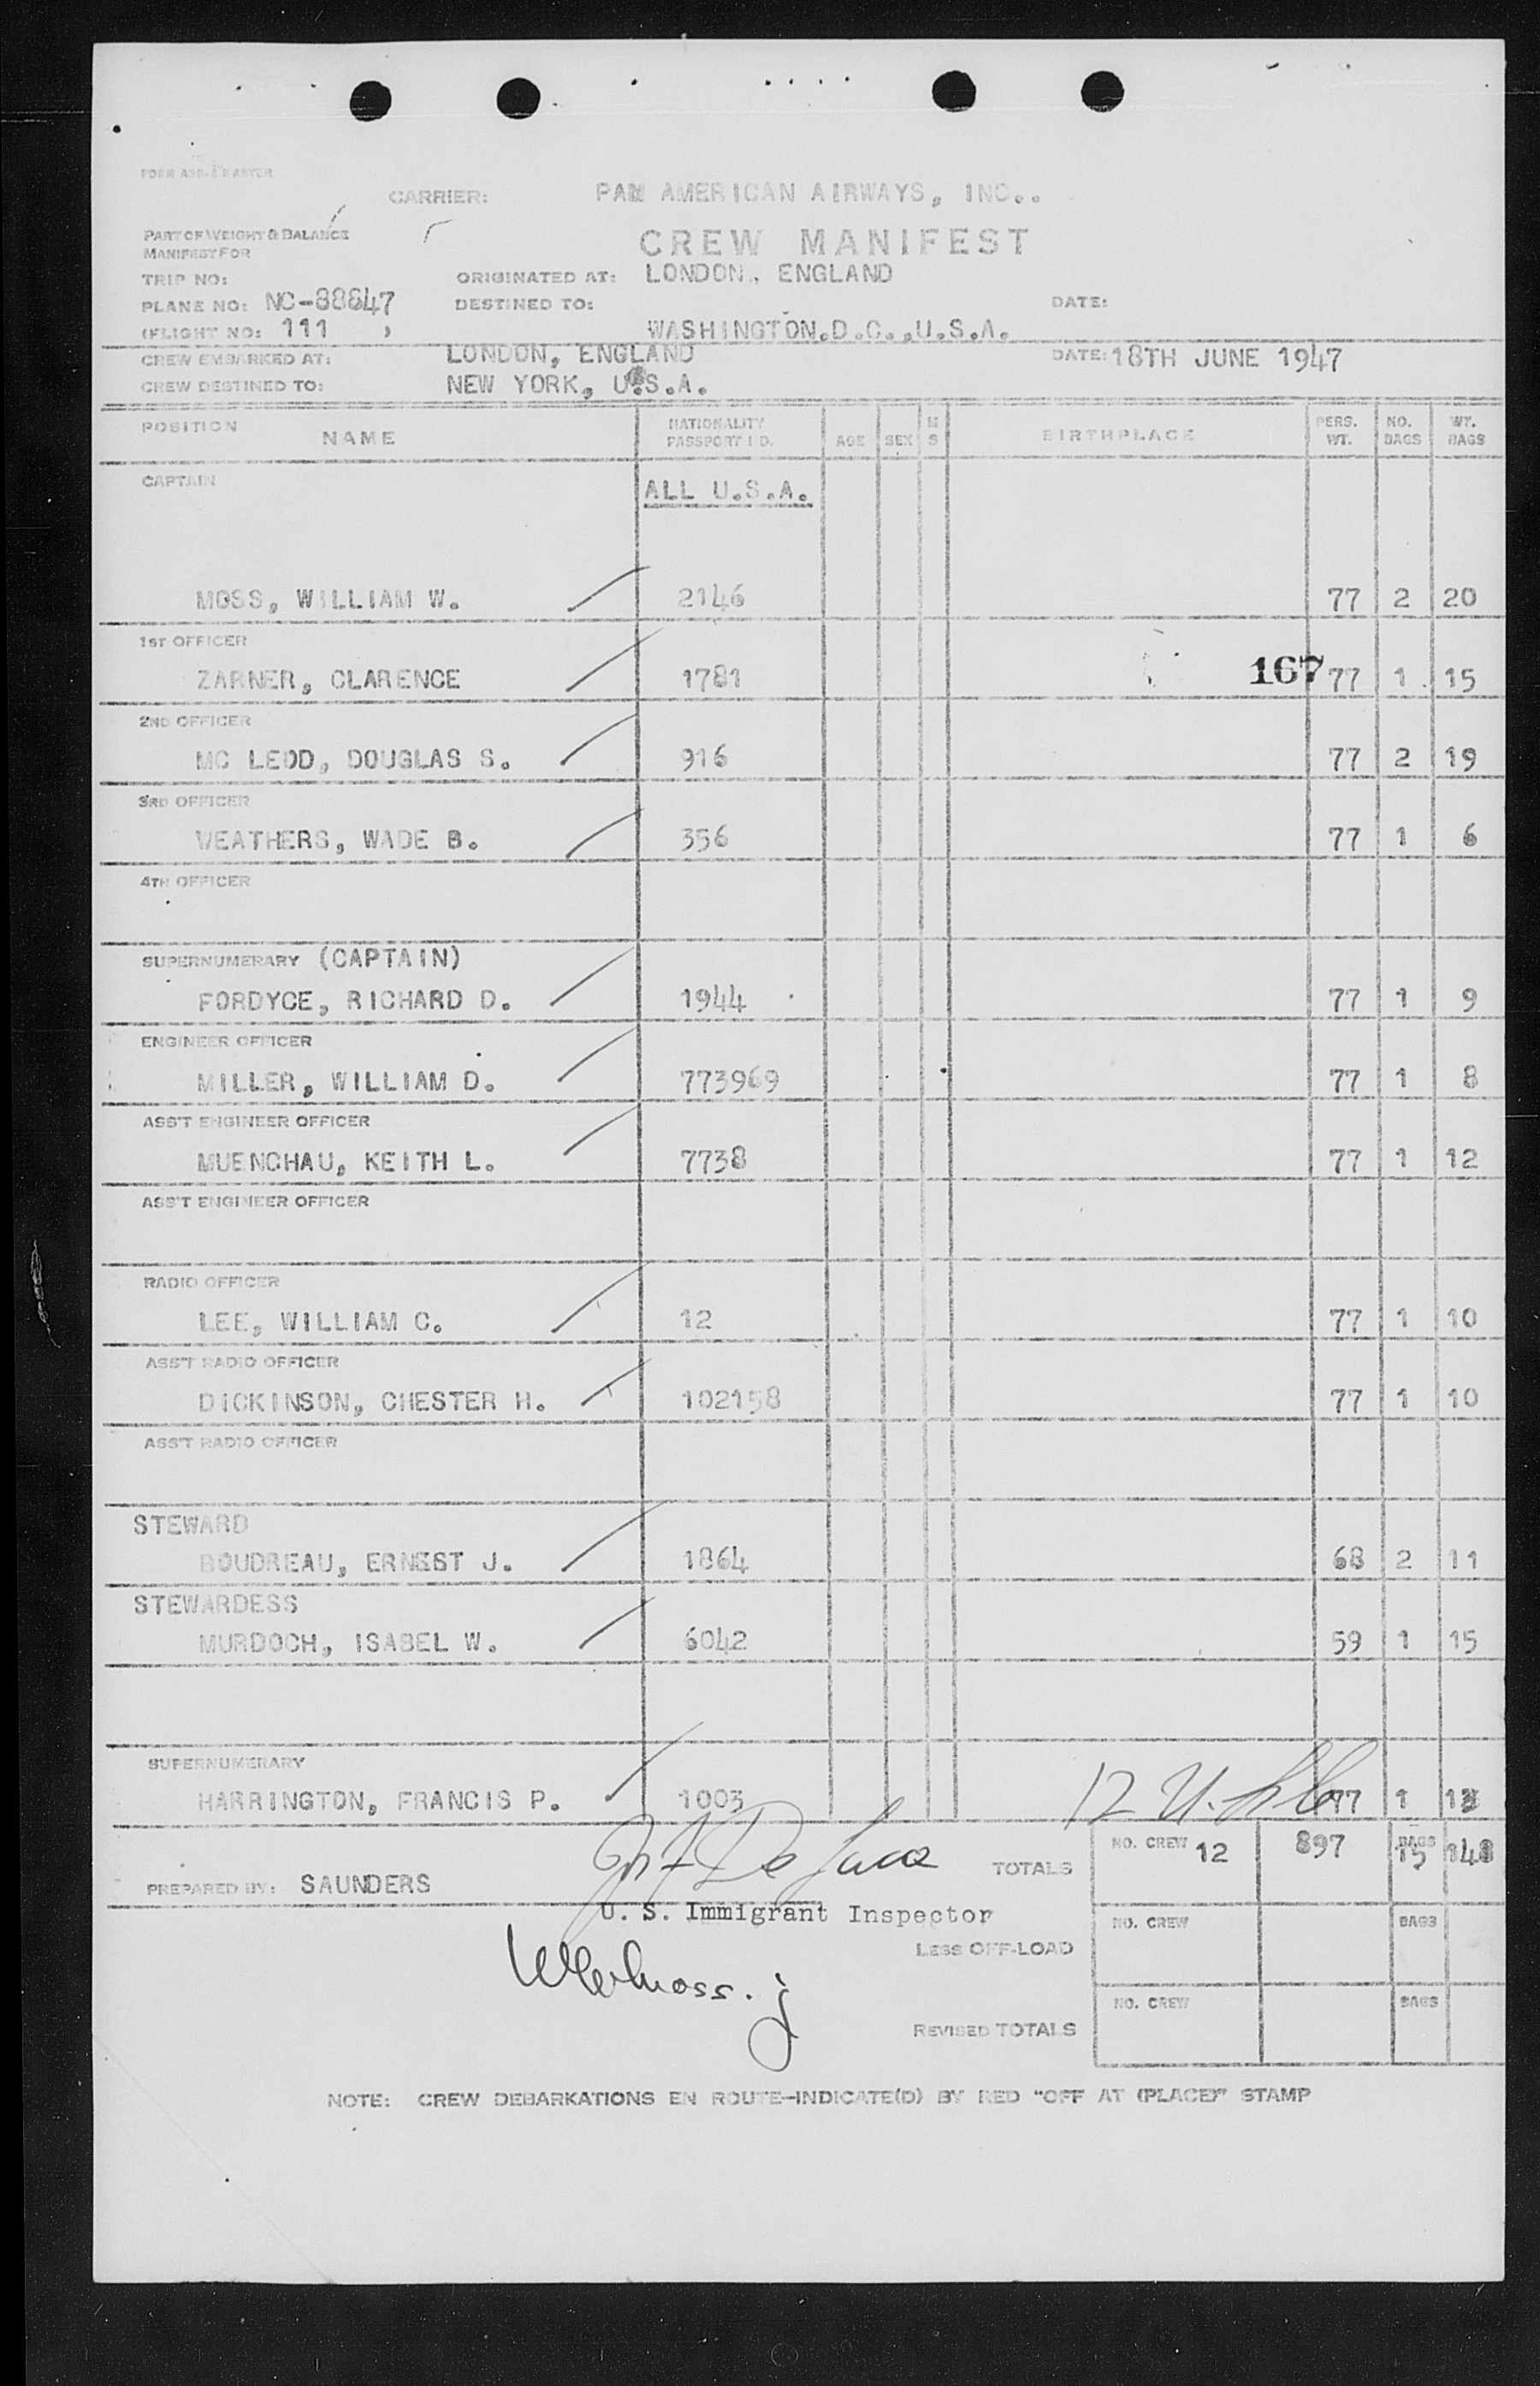 FORM ASB-2 MASTER
CARRIER: PAN AMERICAN AIRWAYS, INC..
PART OF WEIGHT & BALANCE
MANIFEST FOR
CREW MANIFEST
TRIP NO: ORIGINATED AT: LONDON, ENGLAND
PLANE NO: NC-88847 DESTINED TO: DATE:
(FLIGHT NO: 111 ) WASHINGTON.D.C.,U.S.A.
CREW EMBARKED AT: LONDON, ENGLAND DATE: 18TH JUNE 1947
CREW DESTINED TO: NEW YORK, U.S.A.
POSITION NAME NATIONALITY PASSPORT I D. AGE SEX M S BIRTHPLACE PERS. WT. NO. BAGS WT. BAGS
CAPTAIN ALL U.S.A.
MOSS, WILLIAM W. 2146 77 2 20
1ST OFFICER
ZARNER, CLARENCE 1781 167 77 1 15
2ND OFFICER
MC LEOD, DOUGLAS S. 916 77 2 19
3RD OFFICER
WEATHERS, WADE B. 356 77 1 6
4TH OFFICER
SUPERNUMERARY (CAPTAIN)
FORDYCE, RICHARD D. 1944 77 1 9
ENGINEER OFFICER
MILLER, WILLIAM D. 773969 77 1 8
ASS'T ENGINEER OFFICER
MUENCHAU, KEITH L. 7738 77 1 12
ASS'T ENGINEER OFFICER
RADIO OFFICER
LEE, WILLIAM C. 12 77 1 10
ASS'T RADIO OFFICER
DICKINSON, CHESTER H. 102158 77 1 10
ASS'T RADIO OFFICER
STEWARD
BOUDREAU, ERNEST J. 1864 68 2 11
STEWARDESS
MURDOCH, ISABEL W. 6042 59 1 15
SUPERNUMERARY
HARRINGTON, FRANCIS P. 1003 12 77 1 13
TOTALS NO. CREW 12 897 BAGS 15 148
PREPARED BY: SAUNDERS
U. S. Immigrant Inspector
NO. CREW BAGS
LESS OFF-LOAD
NO. CREW BAGS
REVISED TOTALS
NOTE: CREW DEBARKATIONS EN ROUTE-INDICATE(D) BY RED "OFF AT (PLACE)" STAMP